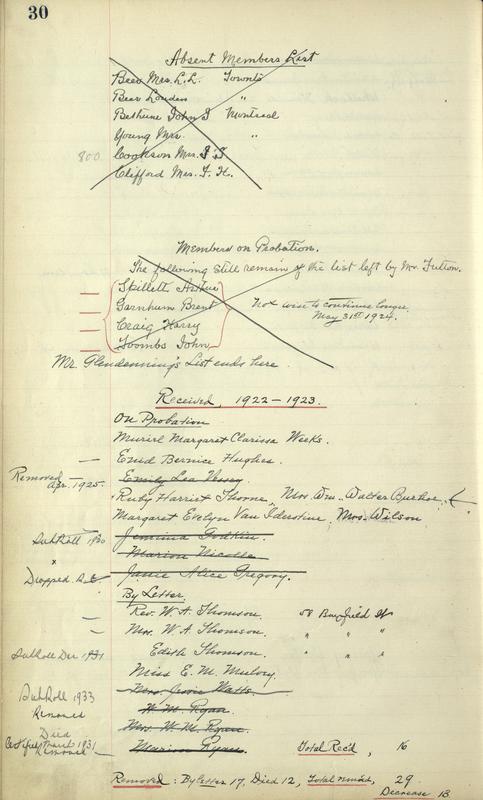 30
Absent Members List
Bear Mrs. L. L. Toronto
Bear Louden "
Bethune John J Montreal
Young Mrs. "
800 Cookson Mrs. J. J
Clifford Mrs. F. H.
Members on Probation.
The following still remain of the list left by Mr. Fulton.
Spillett Arthur
Garnhum Brent
Not wise to continue longer
May 31st 1924.
Craig Harry
Toombs John
Mr. Glendenning's List ends here
Received, 1922-1923.
On Probation
Muriel Margaret Clarissa Weeks.
Enid Bernice Hughes.
Removed Apr. 1925. Emily Lea
Ruby Harriet Thorne, Mrs Wm. Walter
Margaret Evelyn Van Iderstine, Mrs. Wilson
Subroll 1930 Jemima Godkin.
Marion Nicolle
Dropped. Janie Alice Gregory.
By Letter.
Rev. W. A. Thomson. 58 Bayfield St
Mrs. W. A. Thomson. " " "
Subroll Dec 1931 Edith Thomson. " " "
Miss E. M.
Subroll 1933 Mrs. Jessie Watts.
Removed W. M. Ryan.
Died Mrs. W. M. Ryan
Certificate 1931
Removed Marion Ryan. Total Rec'd, 16
Removed: By letter 17, Died 12, Total rem'd, 29
Decrease 13